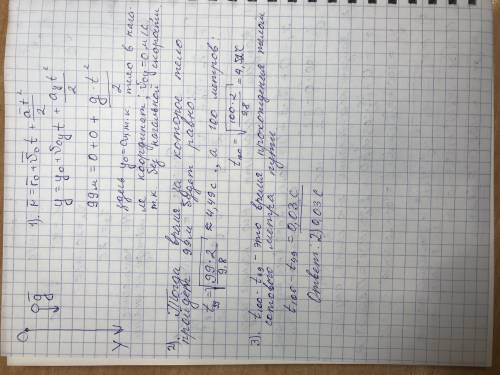 O
0 ḡ
Y
1). r̄ = r̄₀ + v̄₀t + āt²/2
y = y₀ + v₀yt + ayt²/2
99м = 0 + 0 + g·t²/2
где y₀ = 0, т.к. тело в нача-
ле координат v₀y = 0 м/с
т.к. без начальной скорости
2) Тогда время за которое тело
пройдет 99м будет равно:
t₉₉ = √(99·2/9.8) ≈ 4,49с, а 100 метров:
t₁₀₀ = √(100·2/9.8) = 4,52с
3). t₁₀₀ - t₉₉ - это время прохождения телом
сотового метра пути
t₁₀₀ - t₉₉ = 0,03 с
Ответ: 2) 0,03 с